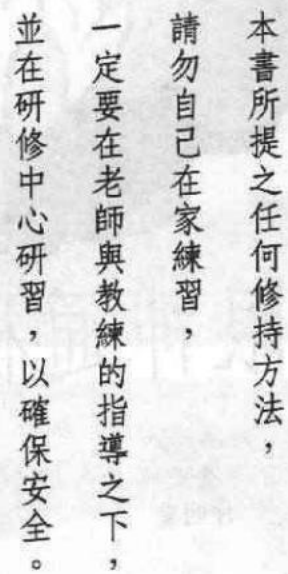 本書所提之任何修持方法，
請勿自己在家練習，
一定要在老師與教練的指導之下，
並在研修中心研習，以確保安全。